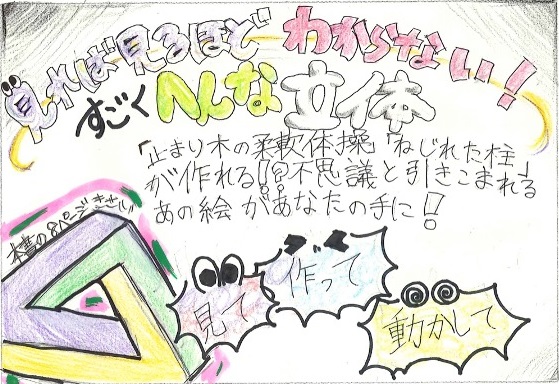 見れば見るほどわからない！
すごくへんな立体
「止まり木の柔軟体操」「ねじれた柱」
が作れる!!?不思議と引きこまれる
あの絵があなたの手に！
本書の8ページきせい
見て
作って
動かして